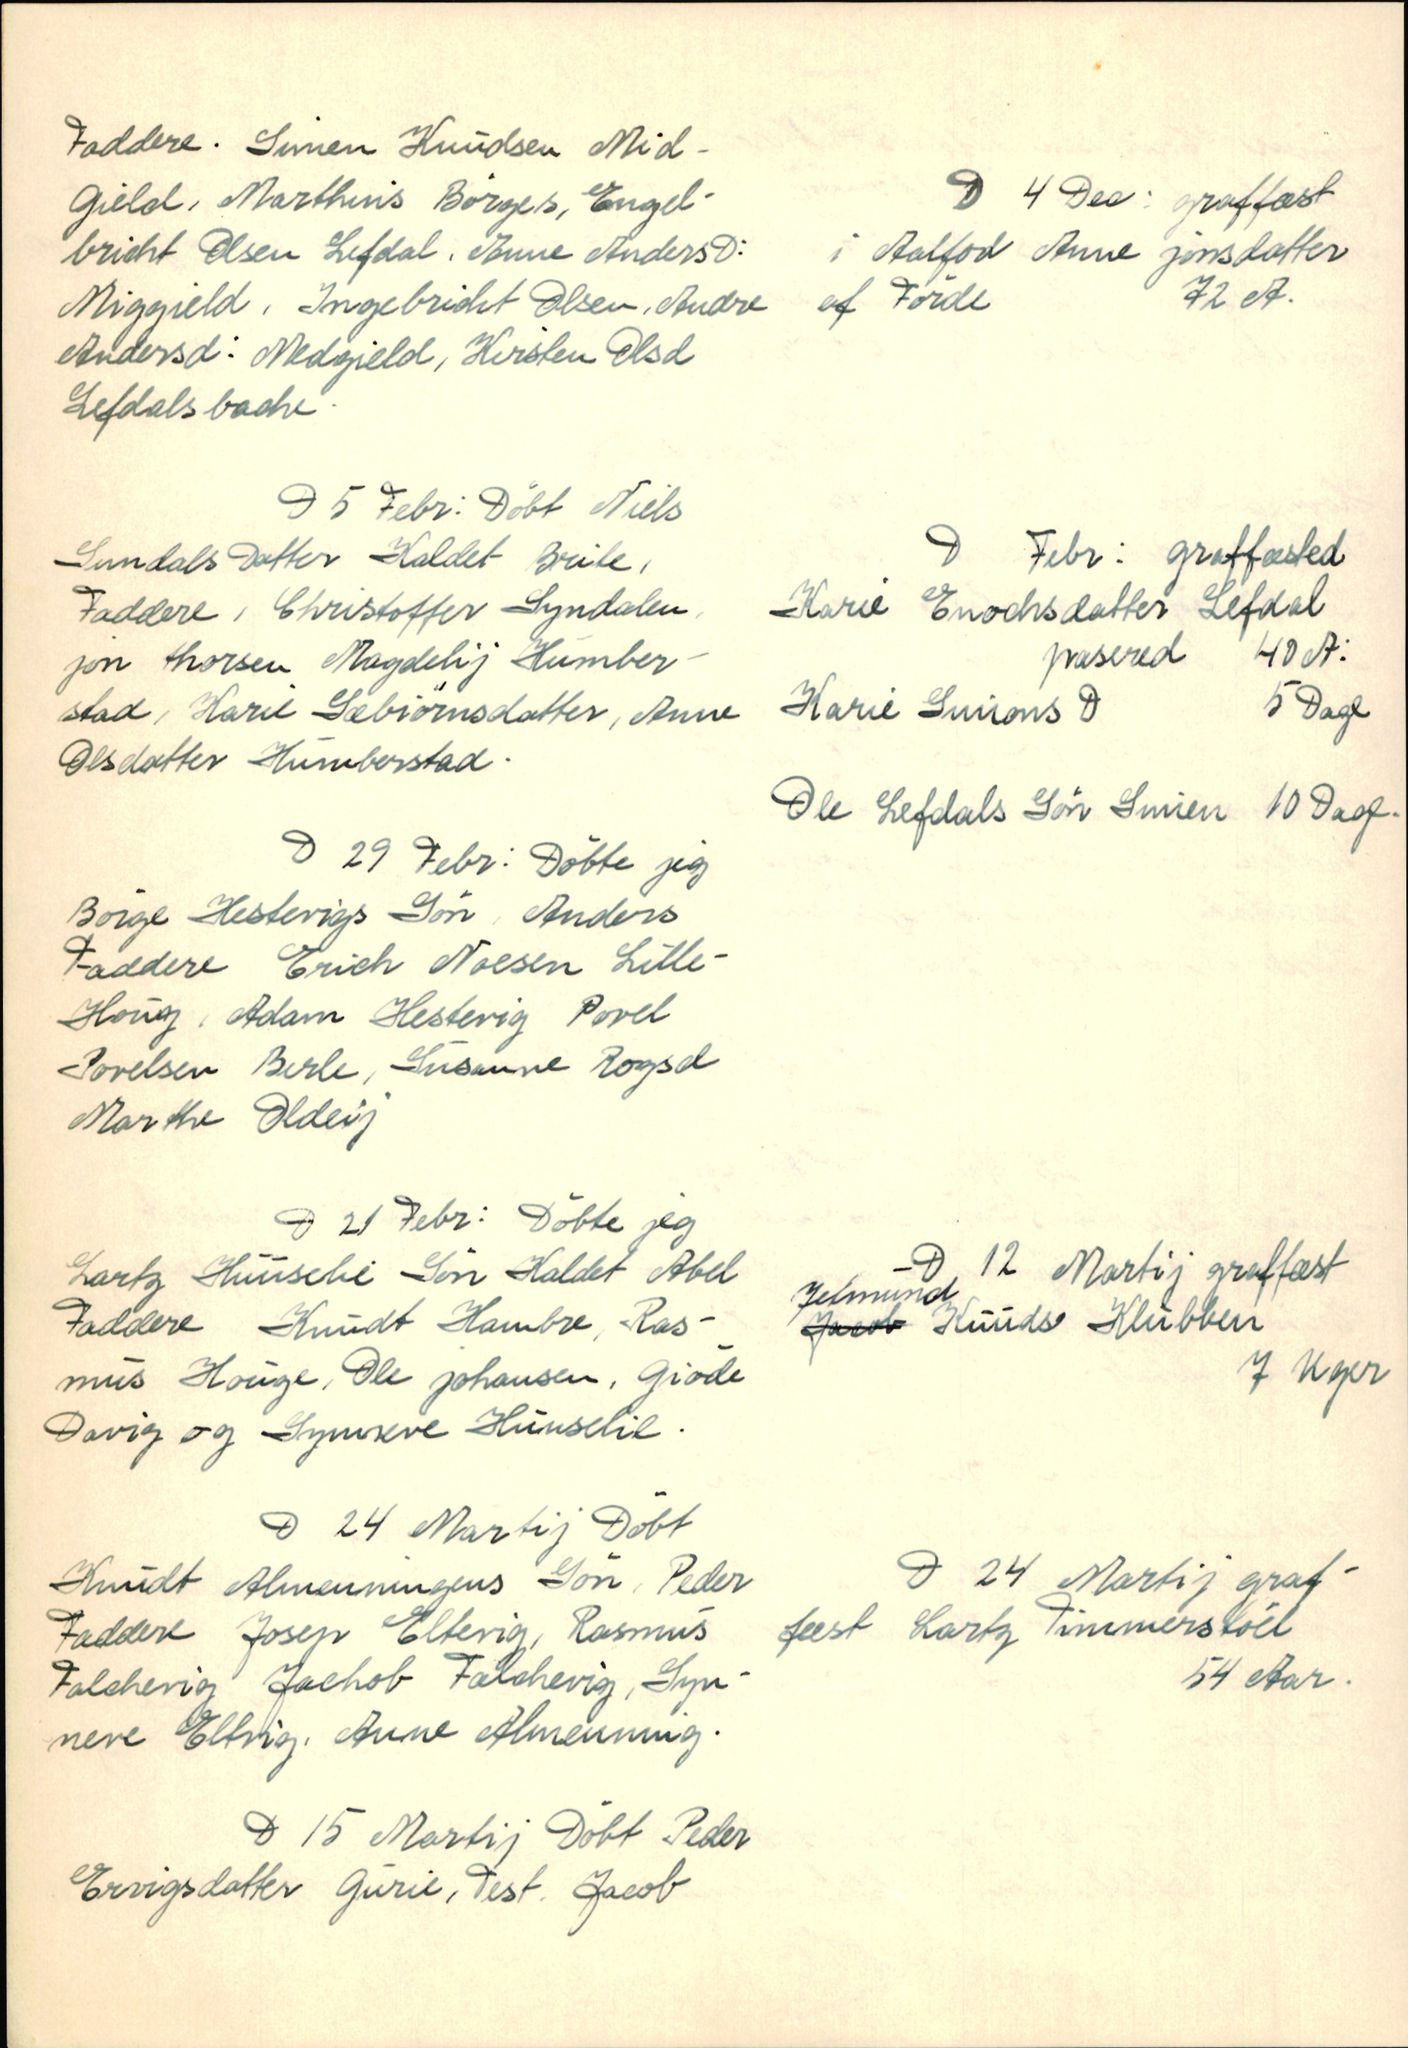 Faddere. Simen Knudsen Mid-
Gield, Marthinis Börges, Engel-
bricht Olsen Lefdal. Anne AndersD:
Miggield, Ingebricht Olsen, Andre
Andersd: Medgield, Kirsten Olsd
Lefdalsbache.
D 5 Febr: Döbt Niels
Sundals Datter Kaldet Brite,
Faddere, Christoffer Syndalen,
jon thorsen Magdelij Humber-
stad, Karie Sæbiörnsdatter, Anne
Olsdatter Humberstad.
D 29 Febr: Döbte jeg
Börge Hestevigs Sön, Anders
Faddere Erich Noesen Lille-
Houg, Adam Hestevig Povel
Povelsen Berle, Susanne Rogsd
Marthe Oldeij
D 21 Febr: Döbte jeg
Lartz Huuselie Sön Kaldet Abel
Faddere Knudt Hambre, Ras-
mus Houge, Ole johansen, Giöde
Davig og Synneve Huuselie.
D 24 Martij Döbt
Knudt Almenningens Sön, Peder
Faddere Josep Eltevig, Rasmus
Falchevig Jachob Falchevig, Syn-
neve Eltvig. Anne Almenning.
D 15 Martij Döbt Peder
Ervigsdatter Gurie, Test. Jacob
D 4 Dec: graffæst
i Aalfod Anne jonsdatter
af Förde 72 A.
D Febr: graffæsted
Karie Enochsdatter Lefdal
40 A:
Karie Simons D 5 Dage
Ole Lefdals Sön Simen 10 Dage.
D 12 Martij graffæst
Jetmund
Jacob Knuds Klubben
7 Uger
D 24 Martij graf-
fæst Lartz Timmerstöel
54 Aar.